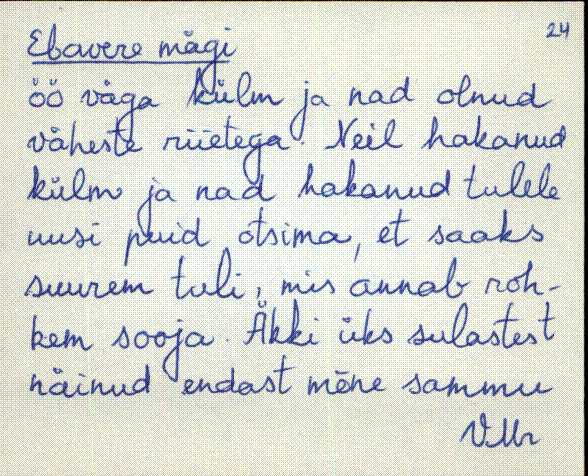 24
Ebavere mägi
öö väga külm ja nad olnud
väheste riietega. Neil hakanud
külm ja nad hakanud tulele
uusi puid otsima, et saaks
suurem tuli, mis annab roh-
kem sooja. Äkki üks sulastest
näinud endast mõne sammu
V.Mr